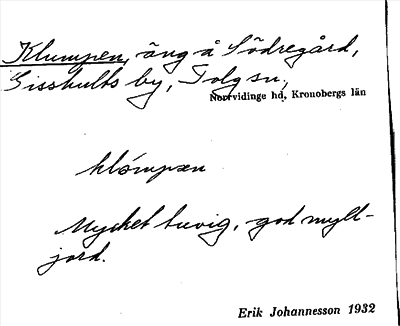 Klumpen, äng å Södregård,
Gisshults by, Tolg sn,
Norrvidinge hd, Kronobergs län
klómpæn
Mycket tuvig, god myll-
jord.
Erik Johannesson 1932